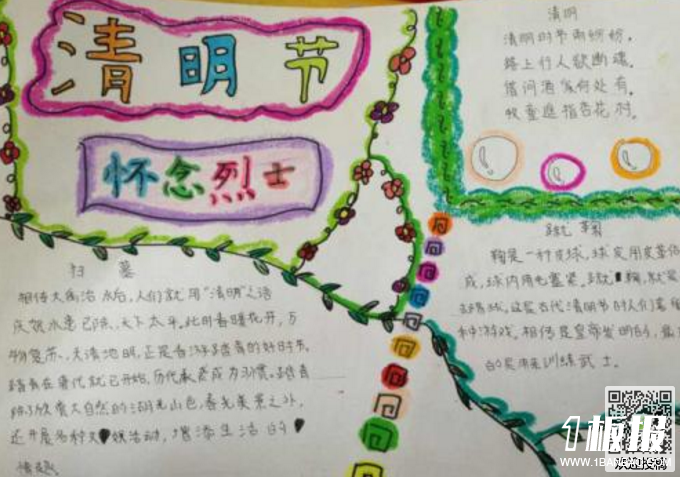 清明节
怀念烈士
清明
清明时节雨纷纷,
路上行人欲断魂。
借问酒家何处有。
牧童遥指杏花村。
扫墓
相传大禹治水后,人们就用"清明"之语
庆贺水患已除,天下太平。此时春暖花开,万
物复苏、天清地明,正是春游踏青的好时节。
踏青在唐代就已开始,历代承袭成为习惯。踏青
除了欣赏大自然的湖光山色、春光美景之外,
还开展各种文娱活动,增添生活的
情趣。
蹴鞠
鞠是一种皮球,球皮用皮革
成,球内用毛塞紧。蹴鞠,就是
踢球,这是古代清明节时人们喜
种游戏。相传是黄帝发明的,最
的是用来训练武士。
1板报
WWW.1BANBAO.COM
欢迎投稿